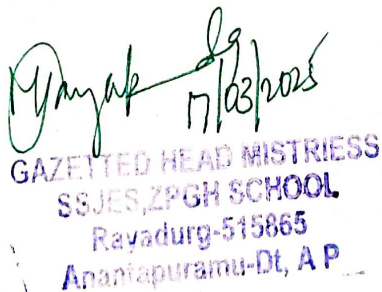 17/03/2025
GAZETTED HEAD MISTRIESS
SSJES,ZPGH SCHOOL
Rayadurg-515865
Anantapuramu-Dt, A P